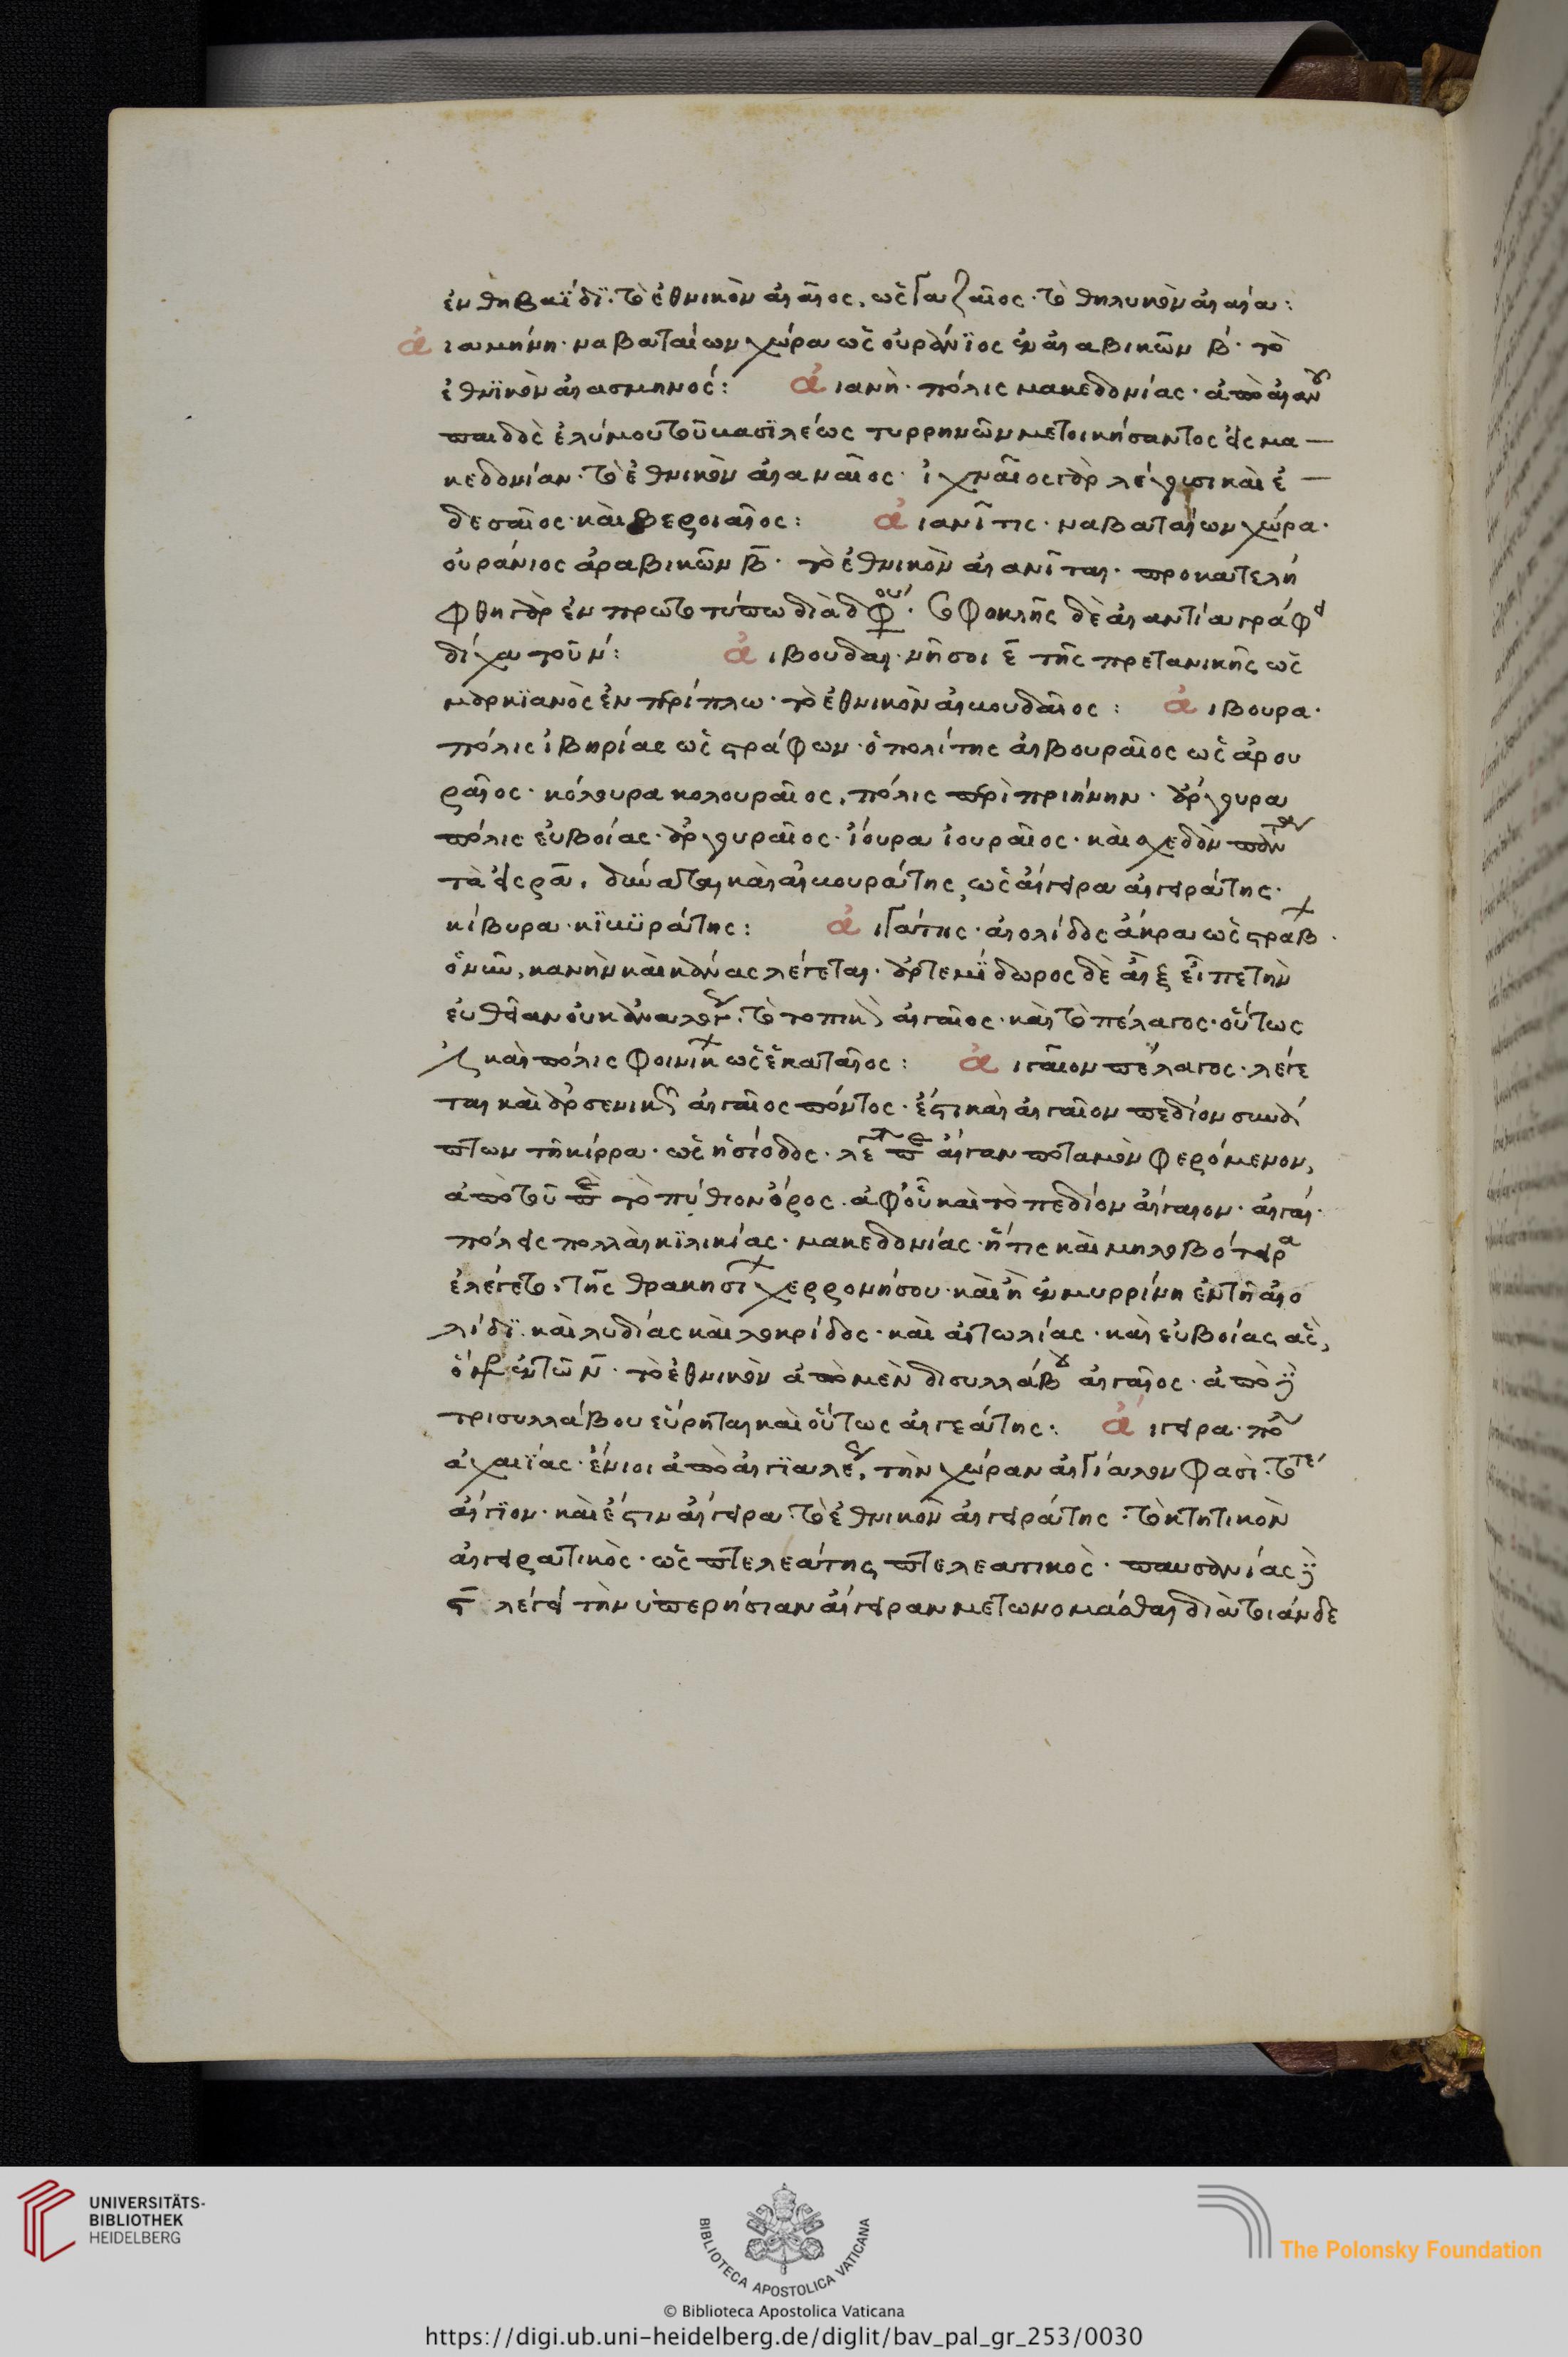 ἐν θηβαΐδϊ. τὸ ἐθνικὸν αἰαῖος, ὡς γαζαῖος. τὸ θηλυκὸν αἰαία:
ἀιαμήνη. ναβαταίων χώρα ὡς οὐράνϊος ἐν αἰαβικῶν β. τὸ
ἐθνϊκὸν αἰασμηνός: ἀιανὴ. πόλις μακεδονίας. ἀπὸ αἰανοῦ
παιδὸς ἐλύμου τοῦ κασϊλέως τυρρηνῶν μετοικήσαντος εἰς μα—
κεδονίαν. τὸ ἐθνικὸν αἰαναῖος. ἰχναῖος γὰρ λέγουσι καὶ ἐ—
δεσαῖος. καὶ βεροιαῖος: ἀιανῖτις. ναβαταίων χώρα.
οὐράνιος ἀραβικῶν β. τὸ ἐθνικὸν αἰανῖται. προκατελή
φθη γὰρ ἐν πρώτω τύπω διὰ δ φου. σοφοκλῆς δὲ αἰαντία γράφει
δίχα τοῦ ν: ἀιβουδαι. νῆσοι ε τῆς πρετανικῆς ὡς
μαρκϊανὸς ἐν περίπλω. τὸ ἐθνικὸν αἰκουδαῖος: ἀιβουρα.
πόλις ἰβηρίας ὡς στράφων. ὁ πολίτης αἰβουραῖος ὡς ἀρου
ραῖος. κόλουρα κολουραῖος, πόλις περὶ πριήνην. ἄργουρα
πόλις εὐβοίας. ἀργουραῖος. ἰόυρα ἰουραῖος. καὶ σχεδὸν πάντα
τὰ εἰς ρα. δύναται καὶ αἰκουράτης, ὡς αἴγειρα αἰγειράτης.
κίβυρα. κϊκϋράτης: ἀιγάτης. αἰολίδος ἄκρα ὡς στραβ.
ὁ νῦν, κανὴν καὶ κάνας λέγεται. ἀρτεμϊδωρος δὲ αἲξ εἶπε τὴν
εὐθεῖαν οὐκ ἀναλόγ. τὸ τοπικὸν αἰγαῖος. καὶ τὸ πέλαγος. οὕτως
ἔστι καὶ πόλις φοινικ ὡς ἑκαταῖος: ἀιγαῖον πέλαγος. λέγε
ται καὶ ἀρσενικῶς αἰγαῖος πόντος. ἔστι καὶ αἰγαῖον πεδίον συνά
πτων τῆ κίρρα. ὡς ἡσίοδος. λε π αἴγαν ποταμὸν φερόμενον,
ἀπὸ τοῦ π τὸ πύθιον ὄρος. ἀφ' οὗ καὶ τὸ πεδίον αἴγαιον. αἰγαί.
πόλεις πολλαὶ κϊλικίας. μακεδονίας. ἥτις καὶ μηλοβότειρα
ἐλέγετο, τῆς θρακησι χερρονήσου. καὶ ἡ ἐν μυρρίνη ἐν τῆ αἰο
λίδϊ. καὶ λυδίας καὶ λοκρίδος. καὶ αἰτωλίας. καὶ εὐβοίας ἀς,
ὁ εν τῶ ν. τὸ ἐθνικὸν ἀπὸ μὲν δισυλλάβου αἰγαῖος. ἀπὸ δὲ
τρισυλλάβου εὕρηται καὶ οὕτως αἰγεάτης: ἀιγειρα. πό
ἀχαιΐας. ἔνιοι ἀπὸ αἰγϊαλοῦ, τὴν χώραν αἰγίαλον φασὶ. τό τε
αἴγϊον. καὶ ἔστιν αἴγειρα. τὸ ἐθνικὸν αἰγειράτης. τὸ κτητικὸν
αἰγειρατικὸς. ὡς πτελεάτης πτελεατικὸς. παυσανίας δὲ
ζ λέγει τὴν ὑπερησίαν αἴγειραν μετωνομάσθαι διὰ τοιάνδε
UNIVERSITÄTS-
BIBLIOTHEK
HEIDELBERG
BIBLIOTECA APOSTOLICA VATICANA
The Polonsky Foundation
© Biblioteca Apostolica Vaticana
https://digi.ub.uni-heidelberg.de/diglit/bav_pal_gr_253/0030